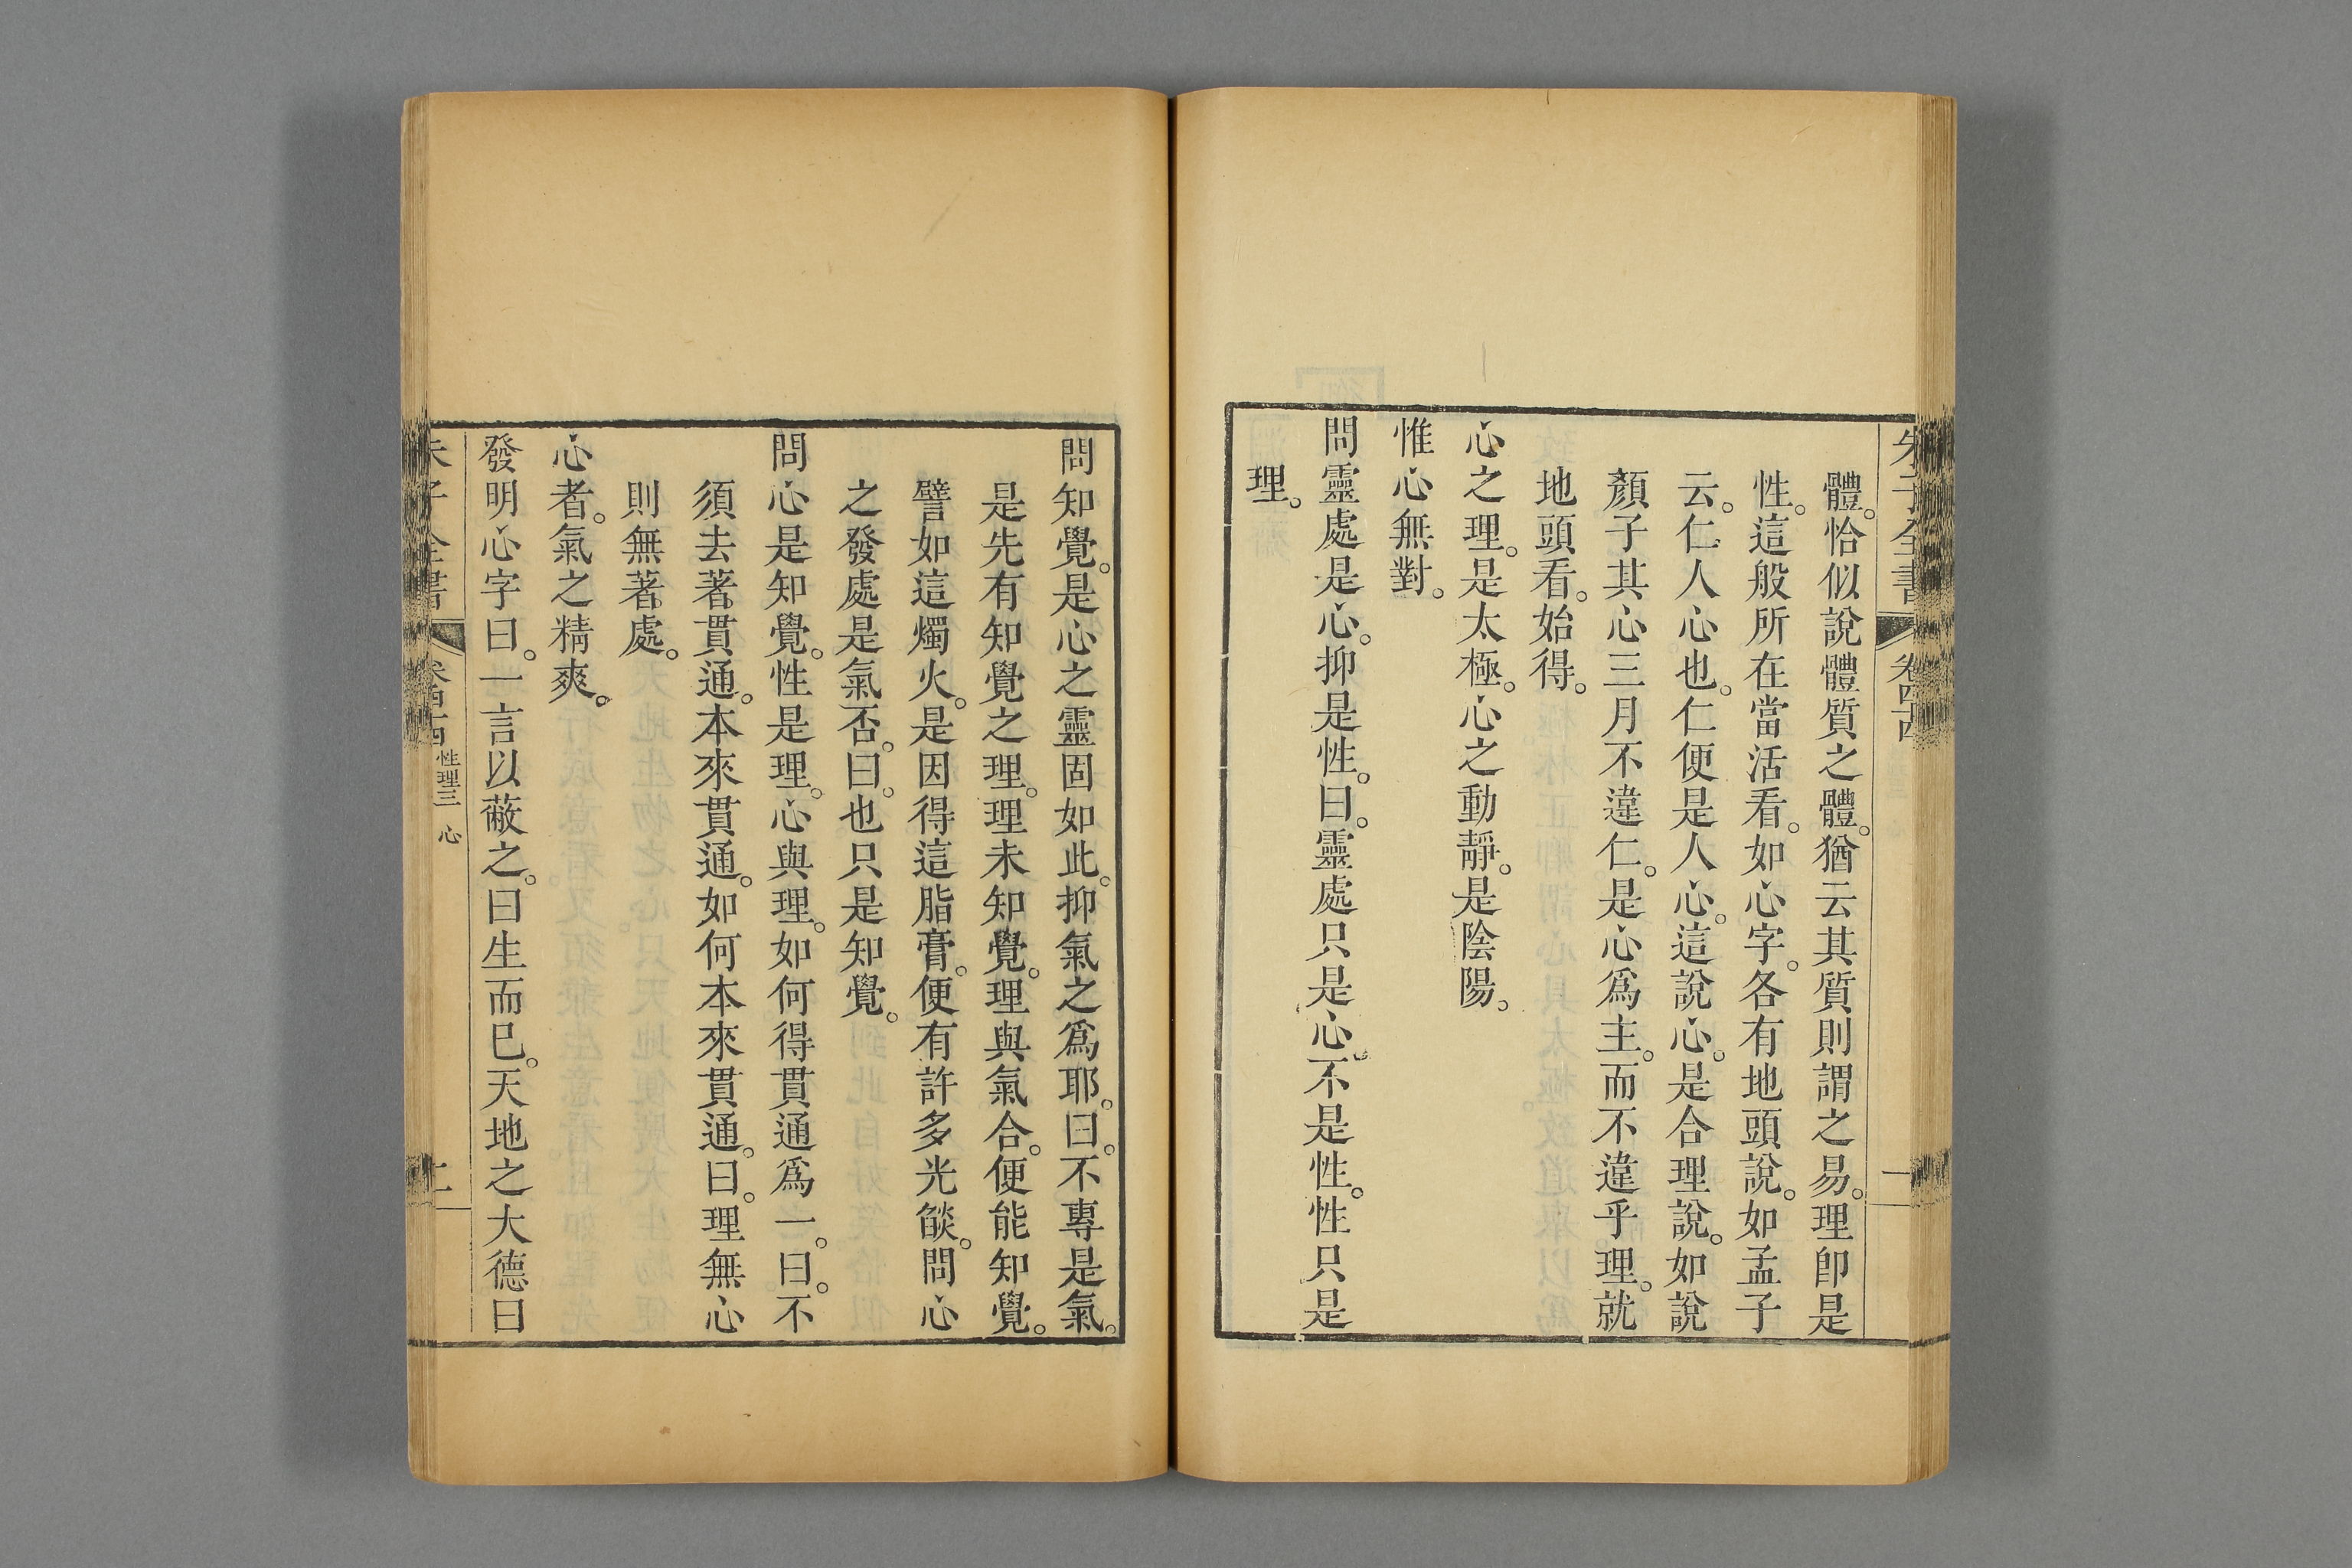 朱子全書 卷四十四 一
體。恰似說體質之體。猶云其質則謂之易。理卽是
性。這般所在當活看。如心字。各有地頭說。如孟子
云。仁人心也。仁便是人心。這說心。是合理說。如說
顏子其心三月不違仁。是心爲主。而不違乎理。就
地頭看。始得。
心之理。是太極。心之動靜。是陰陽。
惟心無對。
問靈處是心。抑是性。曰。靈處只是心。不是性。性只是
理。
問知覺。是心之靈固如此。抑氣之爲耶。曰。不專是氣。
是先有知覺之理。理未知覺。理與氣合。便能知覺。
譬如這燭火。是因得這脂膏。便有許多光燄。問心
之發處是氣否。曰。也只是知覺。
問心是知覺。性是理。心與理。如何得貫通爲一。曰。不
須去著貫通。本來貫通。如何本來貫通。曰。理無心
則無著處。
心者。氣之精爽。
發明心字曰。一言以蔽之。曰生而已。天地之大德曰
朱子全書 卷四十四 性理三 心 二